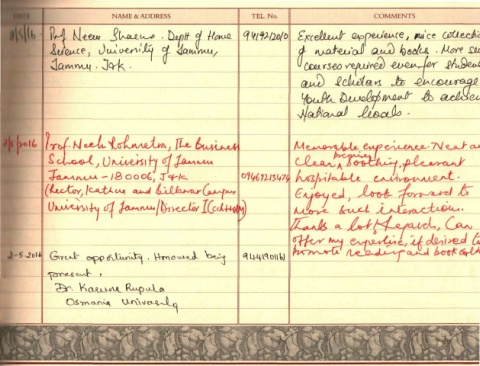 DATE NAME & ADDRESS TEL. No. COMMENTS
/5/16 Prof. Neeru Sharma. Deptt of Home
Science, University of Jammu,
Jammu. J&K.
Excellent experience, nice collection
of material and books. More such
courses required even for students
and scholars to encourage
Youth Development to achieve
National Goals.
2016 Prof. Neelu Rohmetra, The Business
School, University of Jammu
Jammu - 180006, J&K
(Rector, Kathua and Billawar Campus
University of Jammu/Director
Memorable, experience. Neat and
Clean, inspiring soothing, pleasant
hospitable environment.
Enjoyed, look forward to
more such interaction.
Thanks a lot & regards, Can
offer my expertise, if desired to
promote reading and book
2-5-2016 Great opportunity. Honoured being
present.
Dr. Karuna Rupula
Osmania University